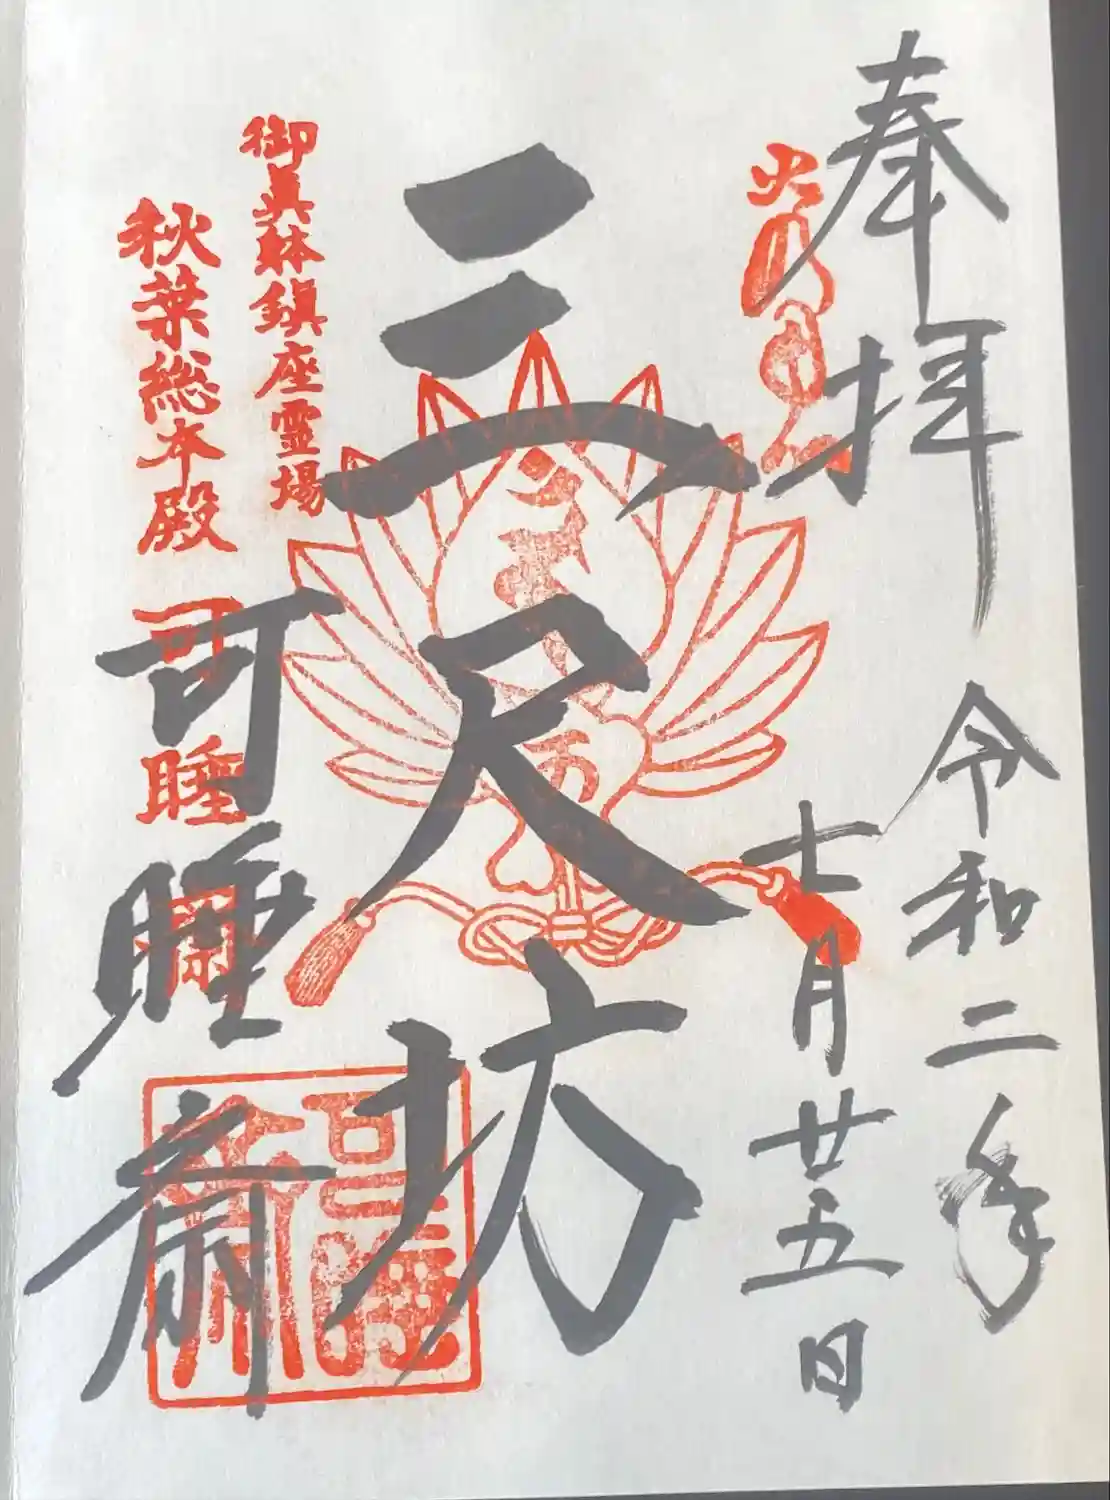 奉拝
令和二年
七月廿五日
三尺坊
御真躰鎮座霊場
秋葉総本殿
可睡斎
可睡齋